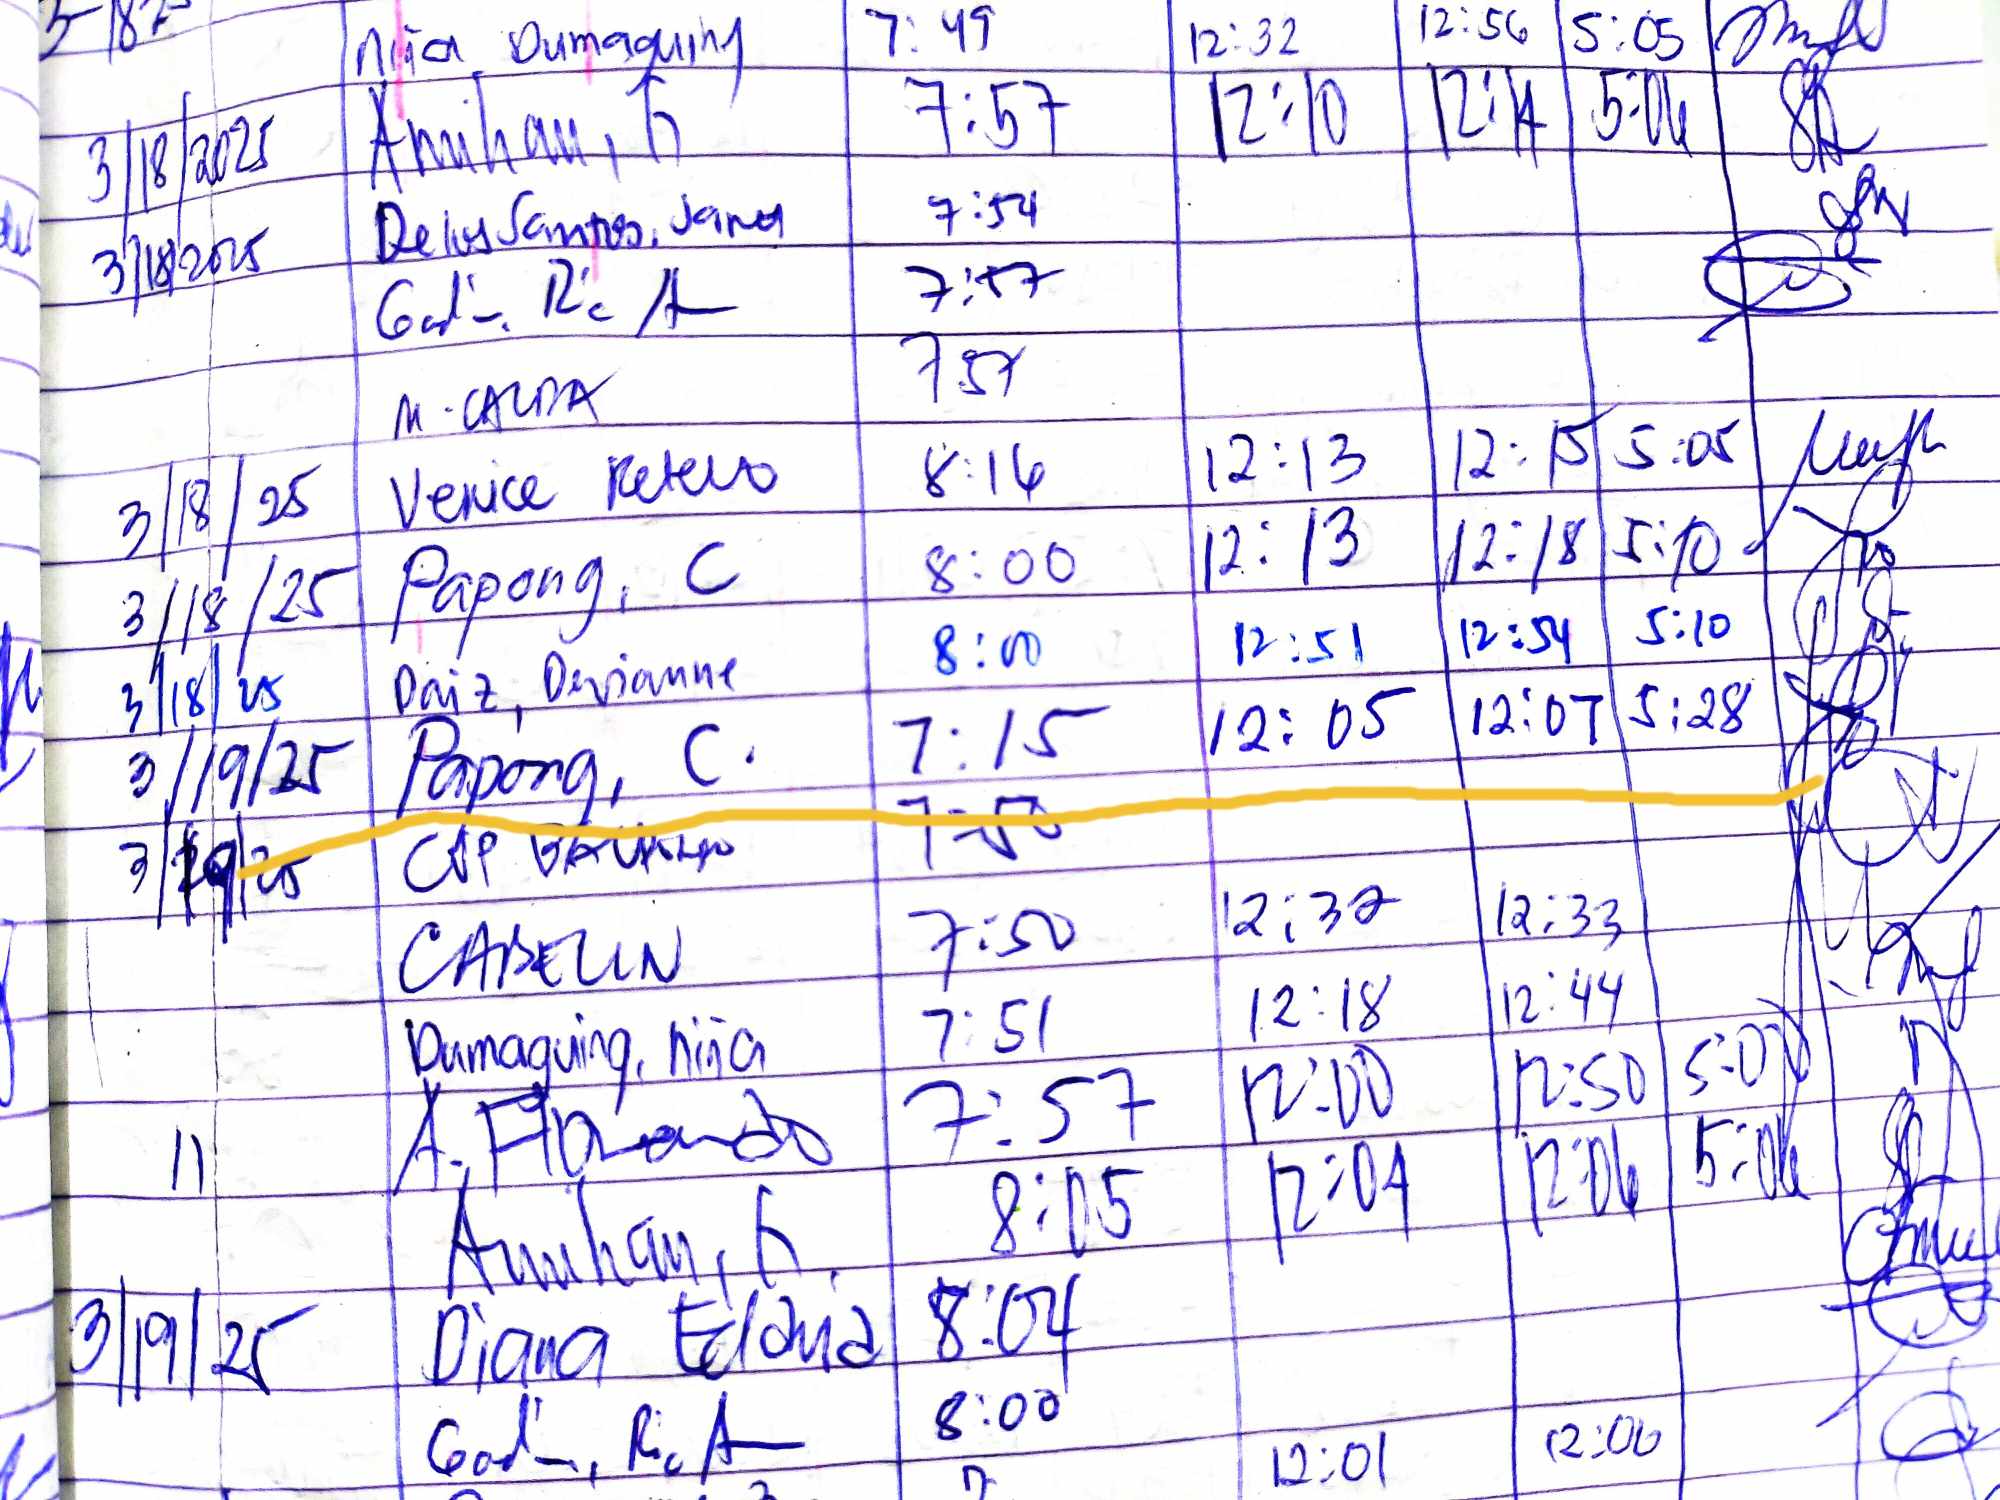 Niña Dumaguing 7:49 12:32 12:56 5:05
3/18/2025 Amihan, K 7:57 12:10 12:14 5:06
3/18/2025 Delos Santos, Janna 7:54
Godin, Ric A 7:57
M. CALDA 7 57
3/18/25 Venice 8:16 12:13 12:15 5:05
3/18/25 Papong, C 8:00 12:13 12:18 5:10
3/18/25 Daiz, Devianne 8:00 12:51 12:54 5:10
3/19/25 Papong, C. 7:15 12:05 12:07 5:28
3/19/25 7:50
CABELIN 7:50 12:32 12:33
Dumaguing, Niña 7:51 12:18 12:44
11 A. Florando 7:57 12:00 12:50
Amihan, K. 8:05 12:04 12:06 5:06
3/19/25 Diana 8:04
Godin, Ric A 8:00
12:01 12:06